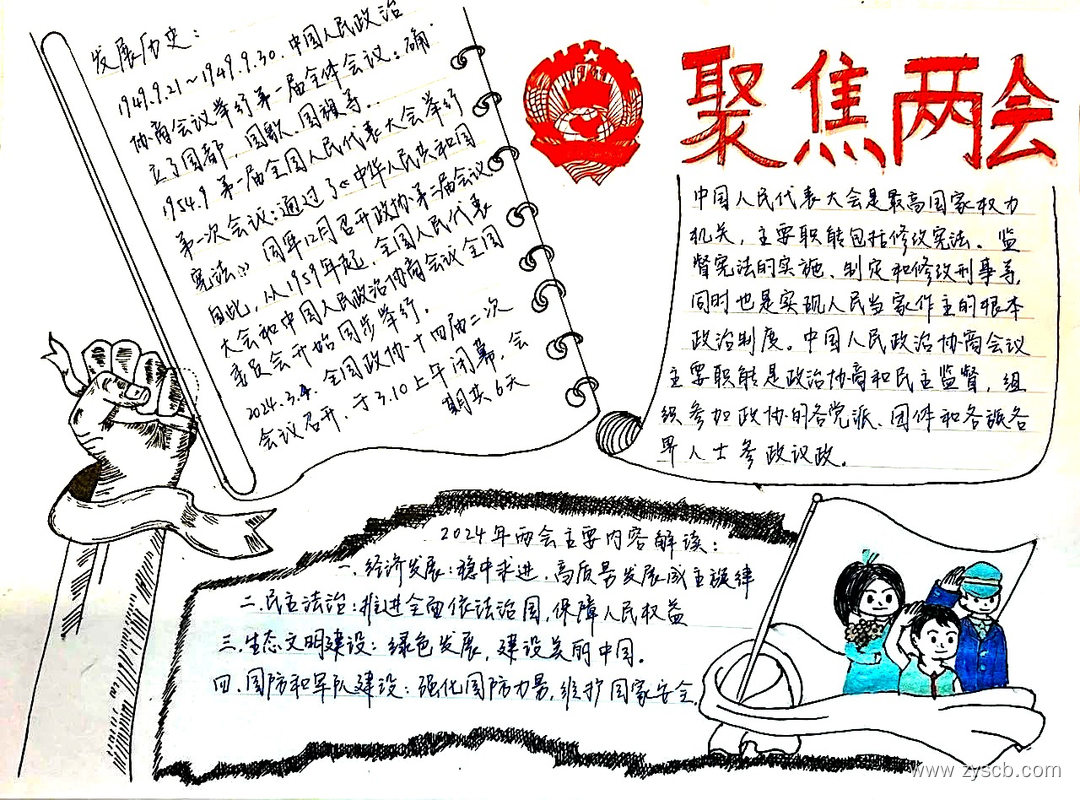 发展历史：
1949.9.21～1949.9.30.中国人民政治
协商会议举行第一届全体会议：确
立了国都、国歌、国旗等..
1954.9 第一届全国人民代表大会举行
第一次会议：通过了《中华人民共和国
宪法》 同年12月召开政协第二届会议
因此，从1959年起，全国人民代表
大会和中国人民政治协商会议全国
委员会开始同步举行.
2024.3.4. 全国政协十四届二次
会议召开，于3.10上午闭幕，会
期共6天
聚焦两会
中国人民代表大会是最高国家权力
机关，主要职能包括修改宪法、监
督宪法的实施、制定和修改刑事等，
同时也是实现人民当家作主的根本
政治制度。中国人民政治协商会议
主要职能是政治协商和民主监督，组
织参加政协的各党派、团体和各派各
界人士参政议政。
2024年两会主要内容解读：
一.经济发展：稳中求进，高质量发展成主旋律
二.民主法治：推进全面依法治国，保障人民权益
三.生态文明建设：绿色发展，建设美丽中国。
四.国防和军队建设：强化国防力量，维护国家安全.
www.zyscb.com